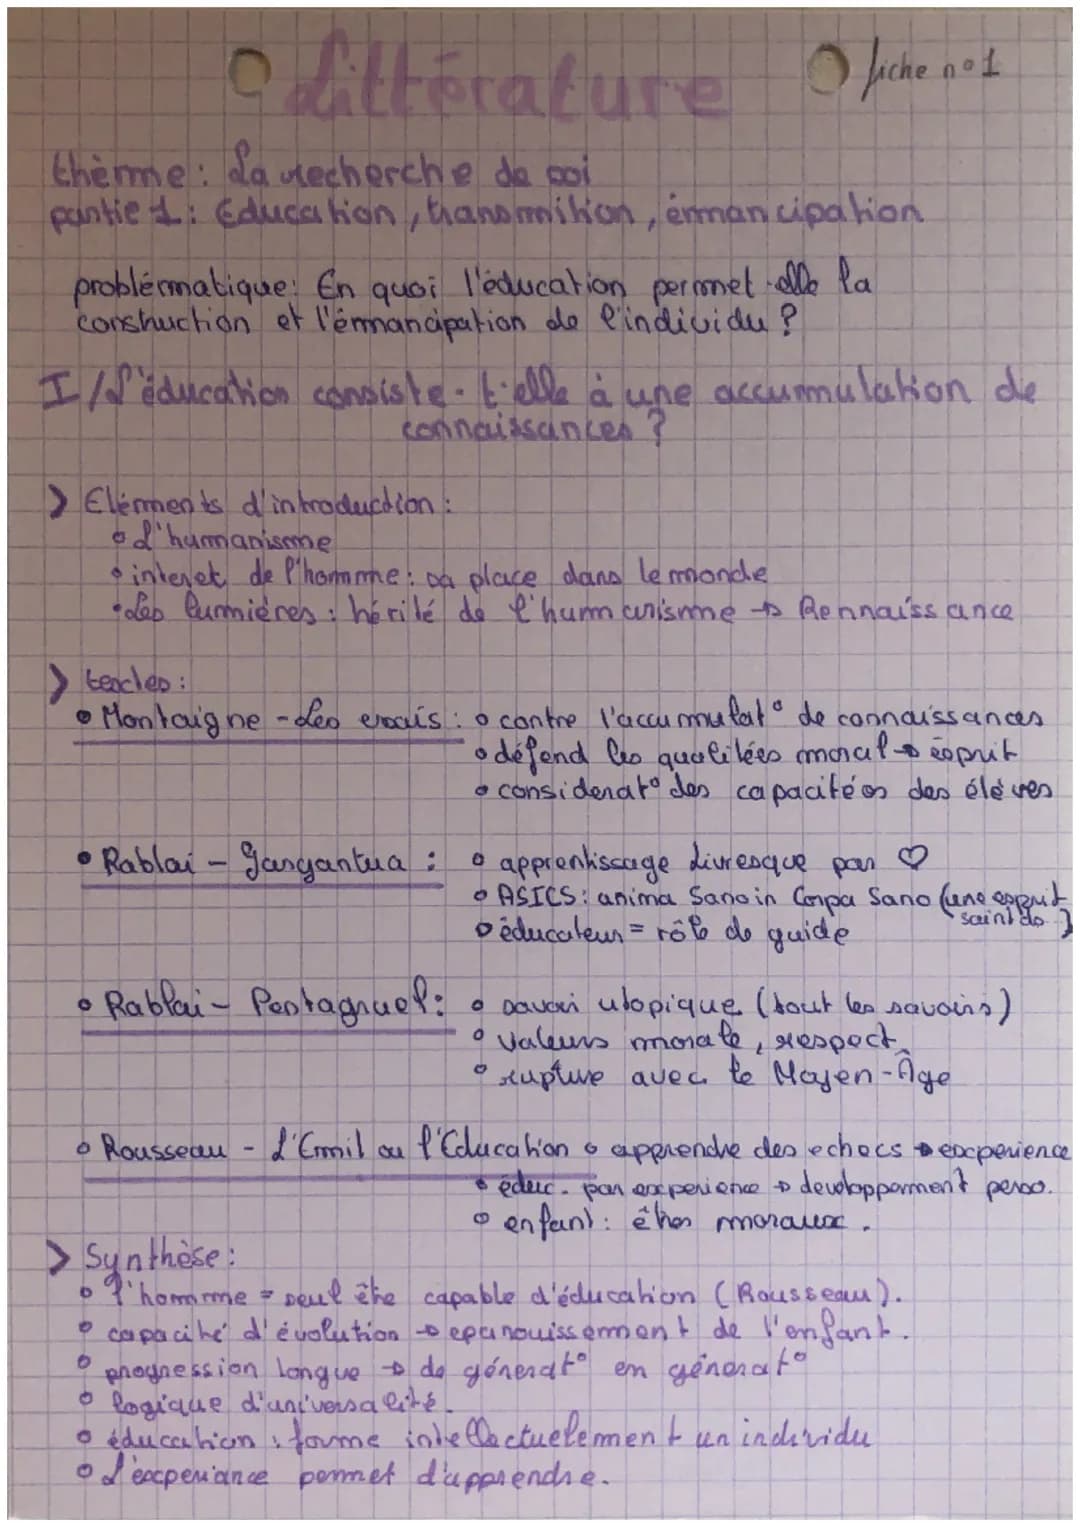 Littérature
fiche n°1
thèrme : La recherche de soi
partie 1 : Education, transmition, émancipation
problématique : En quoi l'éducation permet-elle la
construction et l'émancipation de l'individu ?
I/L'éducation consiste-t-elle à une accumulation de
connaissances ?
> Eléments d'introduction :
• L'humanisme
• interet de l'homme : sa place dans le monde
• Les lumières : hérité de l'humanisme → Rennaissance
> textes :
• Montaigne - Les essais : • contre l'accumulat° de connaissances
• défend les qualitées moral → esprit
• considerat° des capacitées des élèves
• Rablai - Gargantua : • apprentissage Livresque par ♡
• ASICS : anima Sano in Corpa Sano (une esprit
saint ds..)
• éducateur = rôle de guide
• Rablai - Pentagruel : • savoir utopique (tout les savoirs)
• valeurs morale, respect
• rupture avec le Moyen-Âge
• Rousseau - L'Emil ou l'Education • apprendre des echecs → experience
• éduc. par experience → developpement perso.
• enfant : êtres moraux.
> Synthèse :
• l'homme = seul être capable d'éducation (Rousseau).
• capacité d'évolution → epanouissement de l'enfant.
• progression longue → de générat° en générat°
• logique d'universalité.
• éducation : forme intellectuelement un individu
• L'experiance permet d'apprendre.